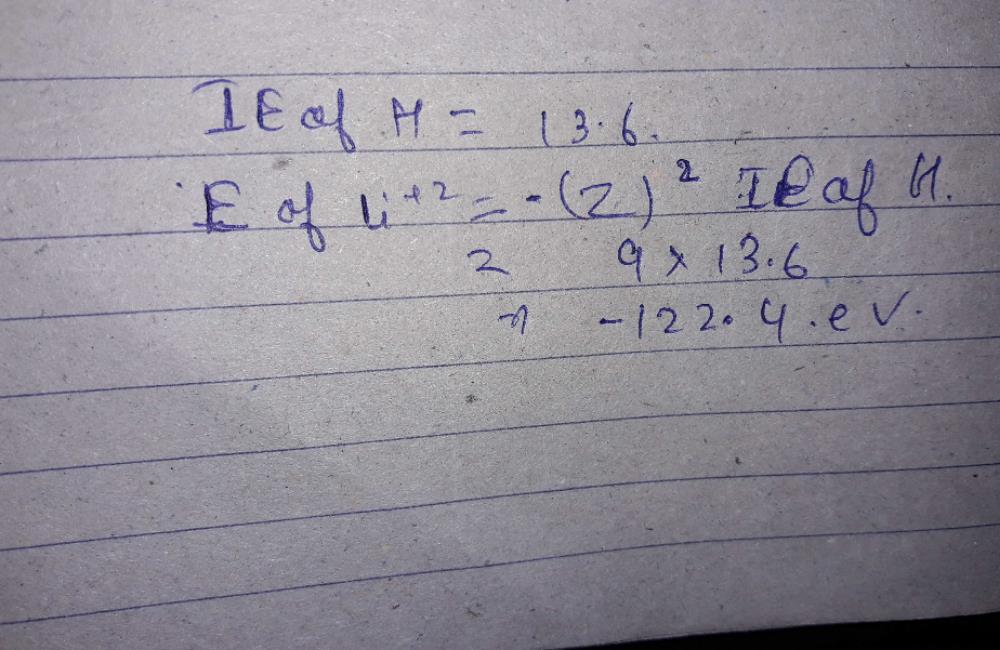 IE of H = 13.6.
E of Li+2 = -(Z)² IE of H.
9 x 13.6
-122.4.eV.